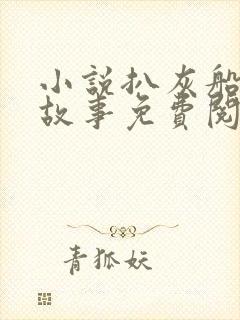 小説扒灰船
故事免費閱
青狐妖